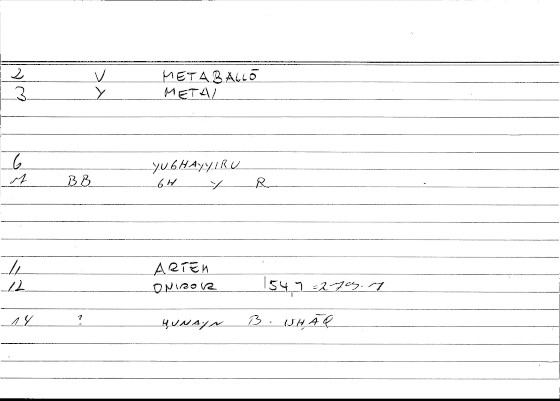 2 V METABALLŌ
3 Y META/
6 YUGHAYYIRU
M BB GH Y R
11 ARTEM
12 ONIROCR 154,7
14 ? HUNAYN B. ISḤĀQ